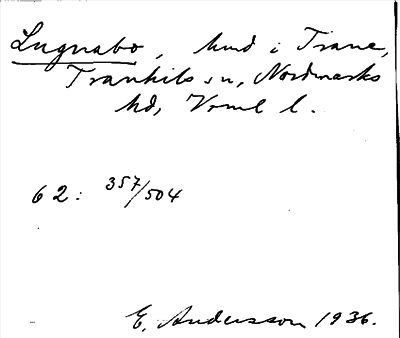 Lugnabo, hmd i Trane,
Trankils sn, Nordmarks
hd, Vrml l.
62: 357/504
E. Andersson 1936.